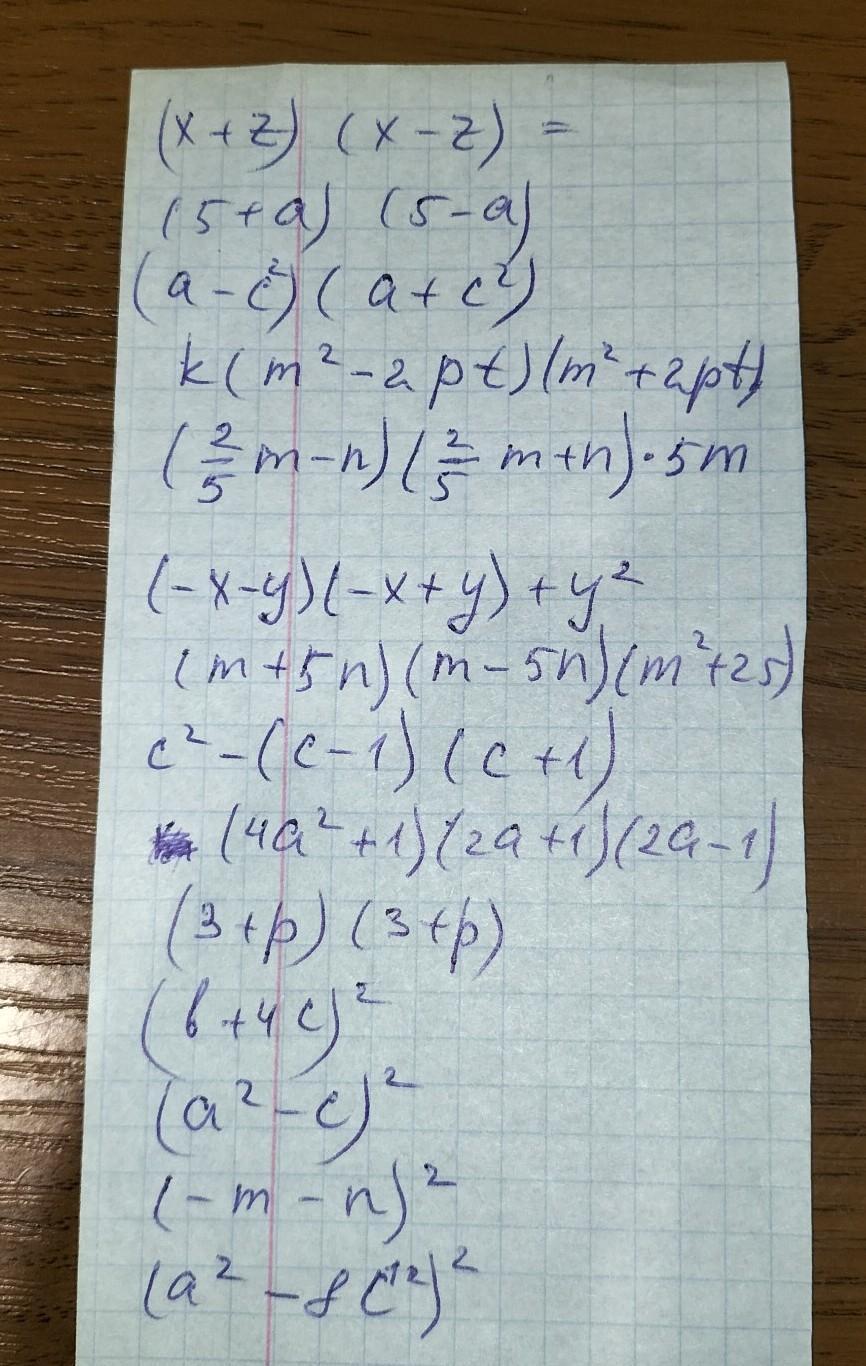 (x+z) (x-z) =
(5+a) (5-a)
(a-c²)(a+c²)
k(m²-2pt)(m²+2pt)
(2/5 m-n)(2/5 m+n)·5m
(-x-y)(-x+y)+y²
(m+5n)(m-5n)(m²+25)
c²-(c-1)(c+1)
(4a²+1)(2a+1)(2a-1)
(3+p)(3+p)
(b+4c)²
(a²-c)²
(-m-n)²
(a²-8c¹²)²